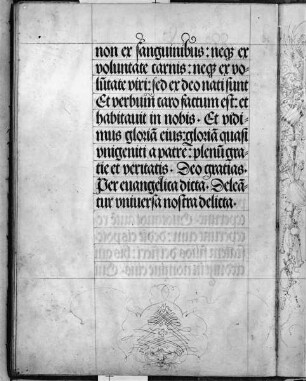 non ex sanguinibus: neqꝫ ex
voluntate carnis: neqꝫ ex vo-
lūtate viri: sed ex deo nati sunt
Et verbuᷓ caro factum est: et
habitauit in nobis. Et vidi-
mus gloriā eius: gloriā quasi
vnigeniti a patre: plenū gra-
tie et veritatis. Deo gratias.
Per euangelica dicta. Deleā-
tur vniuersa nostra delicta.